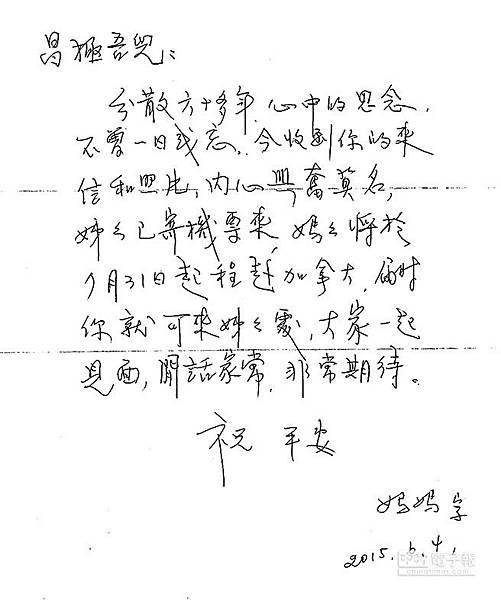 昌極吾兒：
分散六十多年，心中的思念，
不曾一日或忘，今收到你的來
信和照片，內心興奮莫名，
姊々已寄機票來，媽々將於
月31日起程赴加拿大，屆時
你就可來姊々處，大家一起
見面，閒話家常，非常期待。
祝 平安
媽媽字
2015.6.4.
中時電子報
chinatimes.com